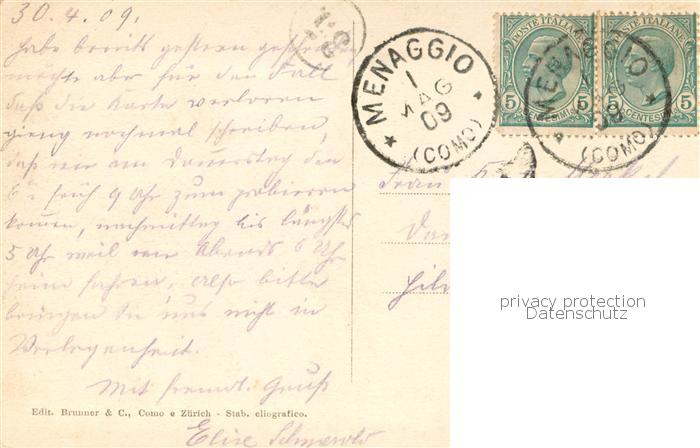 30.4.09.
Habe bereits gestern geschrieben
möchte aber für den Fall
daß die Karte verloren
gieng nochmal schreiben,
daß wir am Donnerstag den
6ten früh 9 Uhr zum probieren
kommen, nachmittag bis längstens
5 Uhr weil wir Abends 6 Uhr
heim fahren, also bitte
bringen Sie uns nicht in
Verlegenheit.
Mit freundl. Gruß
Elise
Edit. Brunner & C., Como e Zürich - Stab. eliografico.
MENAGGIO
1
MAG
09
(COMO)
POSTE ITALIANE
5 CENTESIMI 5
POSTE ITALIANE
5 CENTESIMI 5
MENAGGIO
09
(COMO)
Frau
privacy protection
Datenschutz